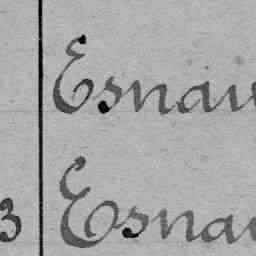 Esnau
3 Esnau